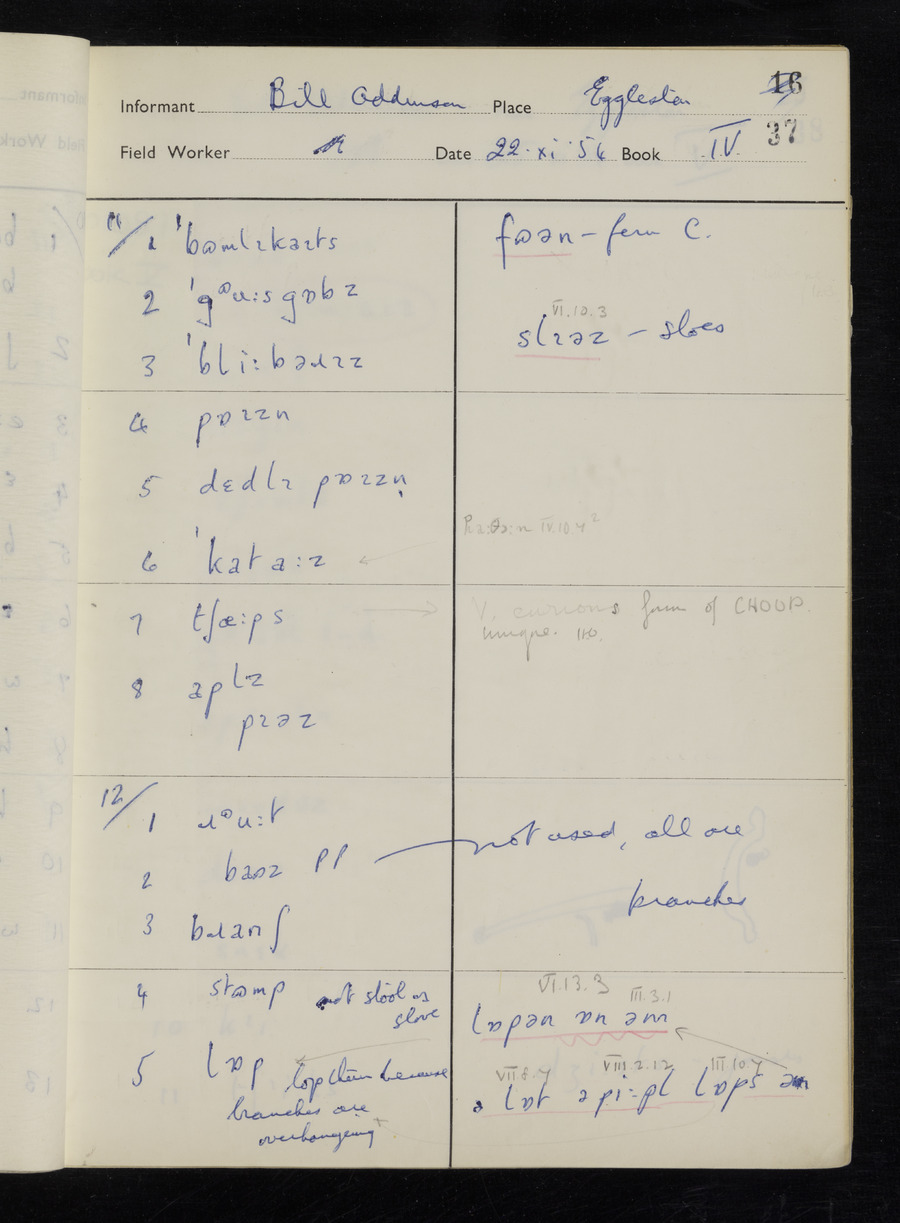 16
Informant Bill Addinson Place Eggleston
37
Field Worker Date 22.xi.54 Book IV
11/ 1 ˈbʊmlɪkaɪts
fʊən – fern C.
2 ˈgᵊu:sgɒbz
VI.10.3
slɪəz – sloes
3 ˈbli:bəɹɪz
4 pɒɪzn
5 dɛdlɪ pɒɪzn̩
IV.10.4²
6 ˈkata:z
7 tʃæ:ps
V. curious form of CHOUP.
unique.
8 aplz
pɪəz
12/
1 ɹᵊu:t
2 baʊz PP
not used, all are
branches
3 bɹanʃ
4 stʊmp not stool or
VI.13.3
III.3.1
lɒpən ɒn əm
5 lɒp lop them because
branches are
overhanging
VII.8.4 VIII.2.12 III.10.4
ə lɒt ə pi:pl lɒps əm